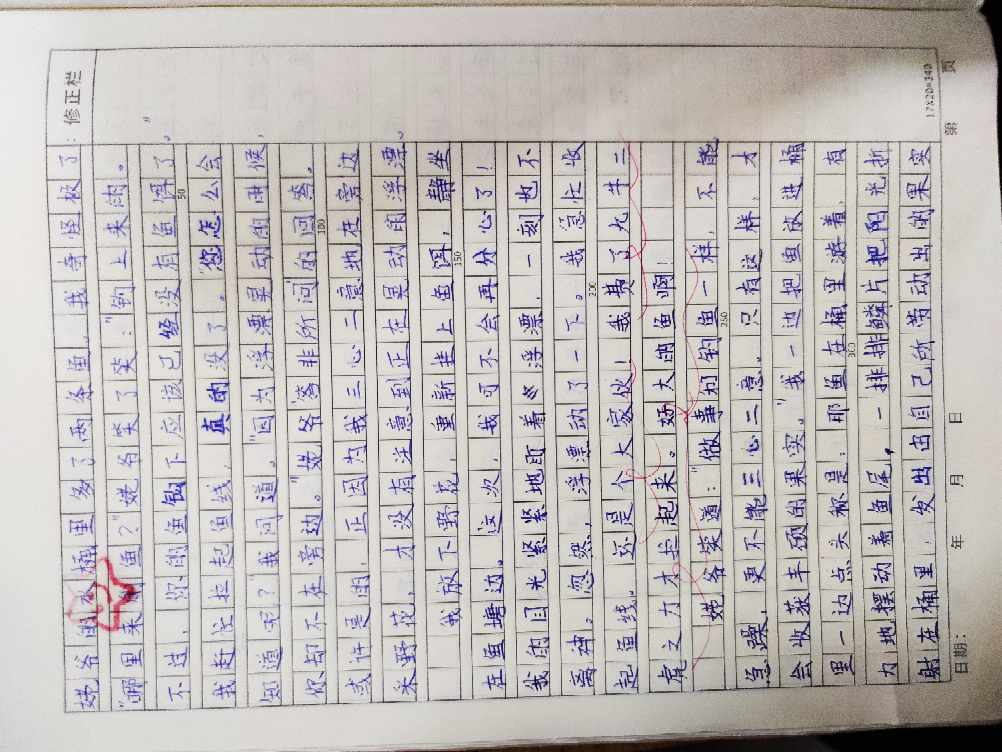 修正栏:
姥爷的桶里多了两条鱼。我奇怪极了:
“哪里来的鱼?”姥爷笑了笑:“钓上来的。
不过,你的鱼钩下应该已经没有鱼饵了。”
50
我赶忙拉起鱼线,真的没了。“您怎么会
知道呢?”我问道。“因为浮漂晃动的时候,
你却不在旁边。”姥爷“答非所问”的回答。
100
或许是的,正因为我三心二意地在旁边
采野花,才没有注意到正在晃动的浮漂。
我放下野花,重新挂上鱼饵,静坐
150
在鱼塘边。这次,我可不会再分心了!
我的目光紧紧地盯着浮漂,一刻也不
离神。忽然,浮漂动了一下。我急忙收
200
起鱼线。还是个大家伙!我费了九牛二
虎之力才拉起来。好大的鱼啊!
姥爷笑道:“做事如钓鱼一样,不能
250
急躁,更不能三心二意。只有这样,才
会收获丰硕的果实。”我一边把鱼放进桶
里一边点头称是。那鱼在桶里游着,有
300
力地摆动着鱼尾,一排排鳞片把阳光折
射在桶里,发出由自己所带动出的果实
17X20=340
日期: 年 月 日 第 页